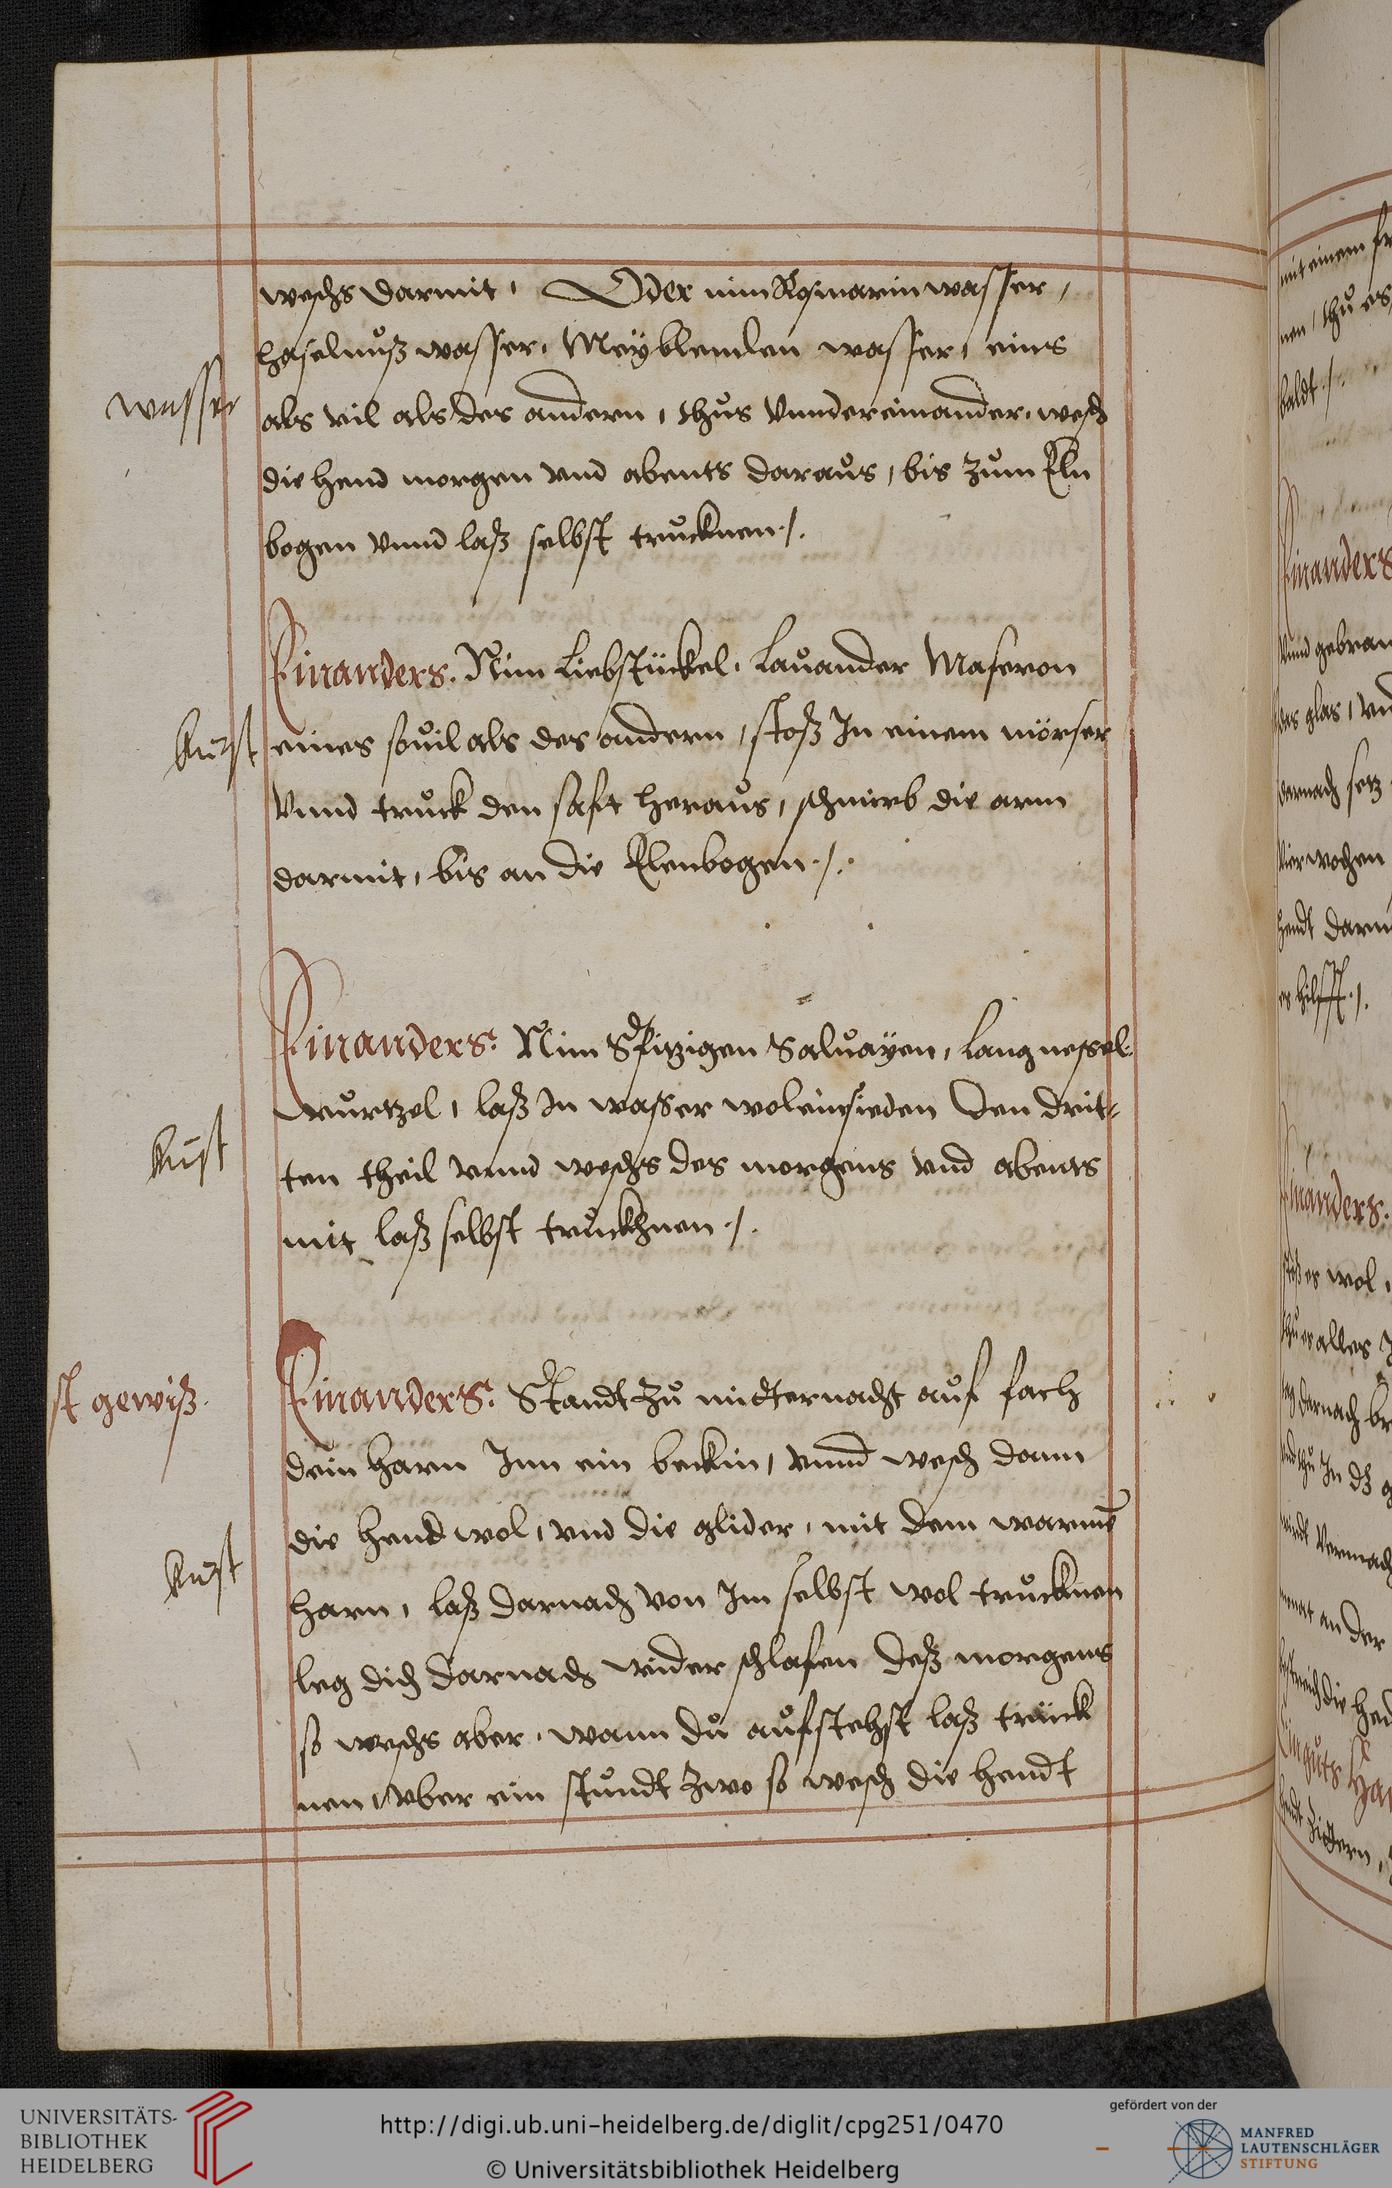 weschs darmit, Oder nim Rosmarin wasser,
haselnuß wasser, Meyblemlen wasser, eins
wasser
als vil als des andern, thus vnndereinander, wesch
die hend morgen vnd abents daraus, bis zum Eln
bogen vnnd laß selbst trucknen ./.
Einanders. Nim Liebstückel, Lauander Maseron
kunst
eines souil als des andern, stoß In einem mörser
vnnd truck den safft heraus, schmirb die arm
darmit, bis an die Elenbogen ./.
Einanders: Nim Spitzigen Saluayen, Lang nessel
wurtzel, laß In wasser wol einsieden den drit-
kunst
ten theil vnnd weschs des morgens vnd abents
mit laß selbst truckhnen ./.
st gewiß.
Einanders: Standt zu mitternacht auf fach
dein harn Inn ein beckin, vnnd wesch dann
die hend wol, vnd die glider, mit dem warmē
kunst
harn, laß darnach von Im selbst wol trucknen
leg dich darnach wider schlafen deß morgens
so weschs aber, wann du aufstehst laß trück
nen, vber ein stundt zwo so wesch die hendt
mit einem
nen, thu es
baldt ./.
Einanders
vnnd gebran
des glas, vnd
darnach setz
vier wochen
hendt darm
es hilfft ./.
Einanders.
stoß es wol,
thu es alles
darnach
an der
Ein guts
Zittern,
UNIVERSITÄTS-
BIBLIOTHEK
HEIDELBERG
http://digi.ub.uni-heidelberg.de/diglit/cpg251/0470
© Universitätsbibliothek Heidelberg
gefördert von der
MANFRED
LAUTENSCHLÄGER
STIFTUNG